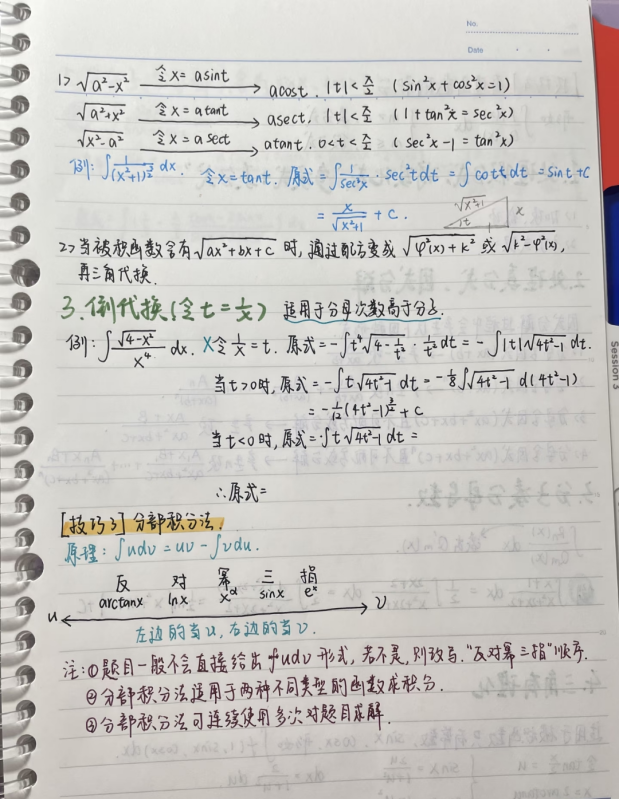 No.
Date
1> √(a²-x²) 令x=asint → acost. |t|<π/2 (sin²x+cos²x=1)
√(a²+x²) 令x=atant → asect. |t|<π/2 (1+tan²x=sec²x)
√(x²-a²) 令x=asect → atant. 0<t<π/2 (sec²x-1=tan²x)
例: ∫1/(x²+1)^(3/2) dx. 令x=tant. 原式=∫1/sec³x·sec²tdt=∫costdt=sint+C
=x/√(x²+1)+C.
√(x²+1) x t 1
2> 当被积函数含有√(ax²+bx+c)时,通过配方变成√(φ²(x)+k²)或√(k²-φ²(x)),
再三角代换.
3.倒代换(令t=1/x) 适用于分母次数高于分子.
例: ∫√(4-x²)/x⁴ dx. X令1/x=t. 原式=-∫t⁴√(4-1/t²)·1/t²dt=-∫|t|√(4t²-1)dt.
当t>0时,原式=-∫t√(4t²-1)dt=-1/8∫√(4t²-1)d(4t²-1)
=-1/12(4t²-1)^(3/2)+C
当t<0时,原式=∫t√(4t²-1)dt=
∴原式=
[技巧3]分部积分法.
原理:∫udv=uv-∫vdu.
反 对 幂 三 指
arctanx lnx x^α sinx eˣ
u ↔ v
左边的当u,右边的当v.
注:①题目一般不会直接给出∫udv形式,若不是,则改写."反对幂三指"顺序.
②分部积分法适用于两种不同类型的函数求积分.
③分部积分法可连续使用多次对题目求解.
Session 3